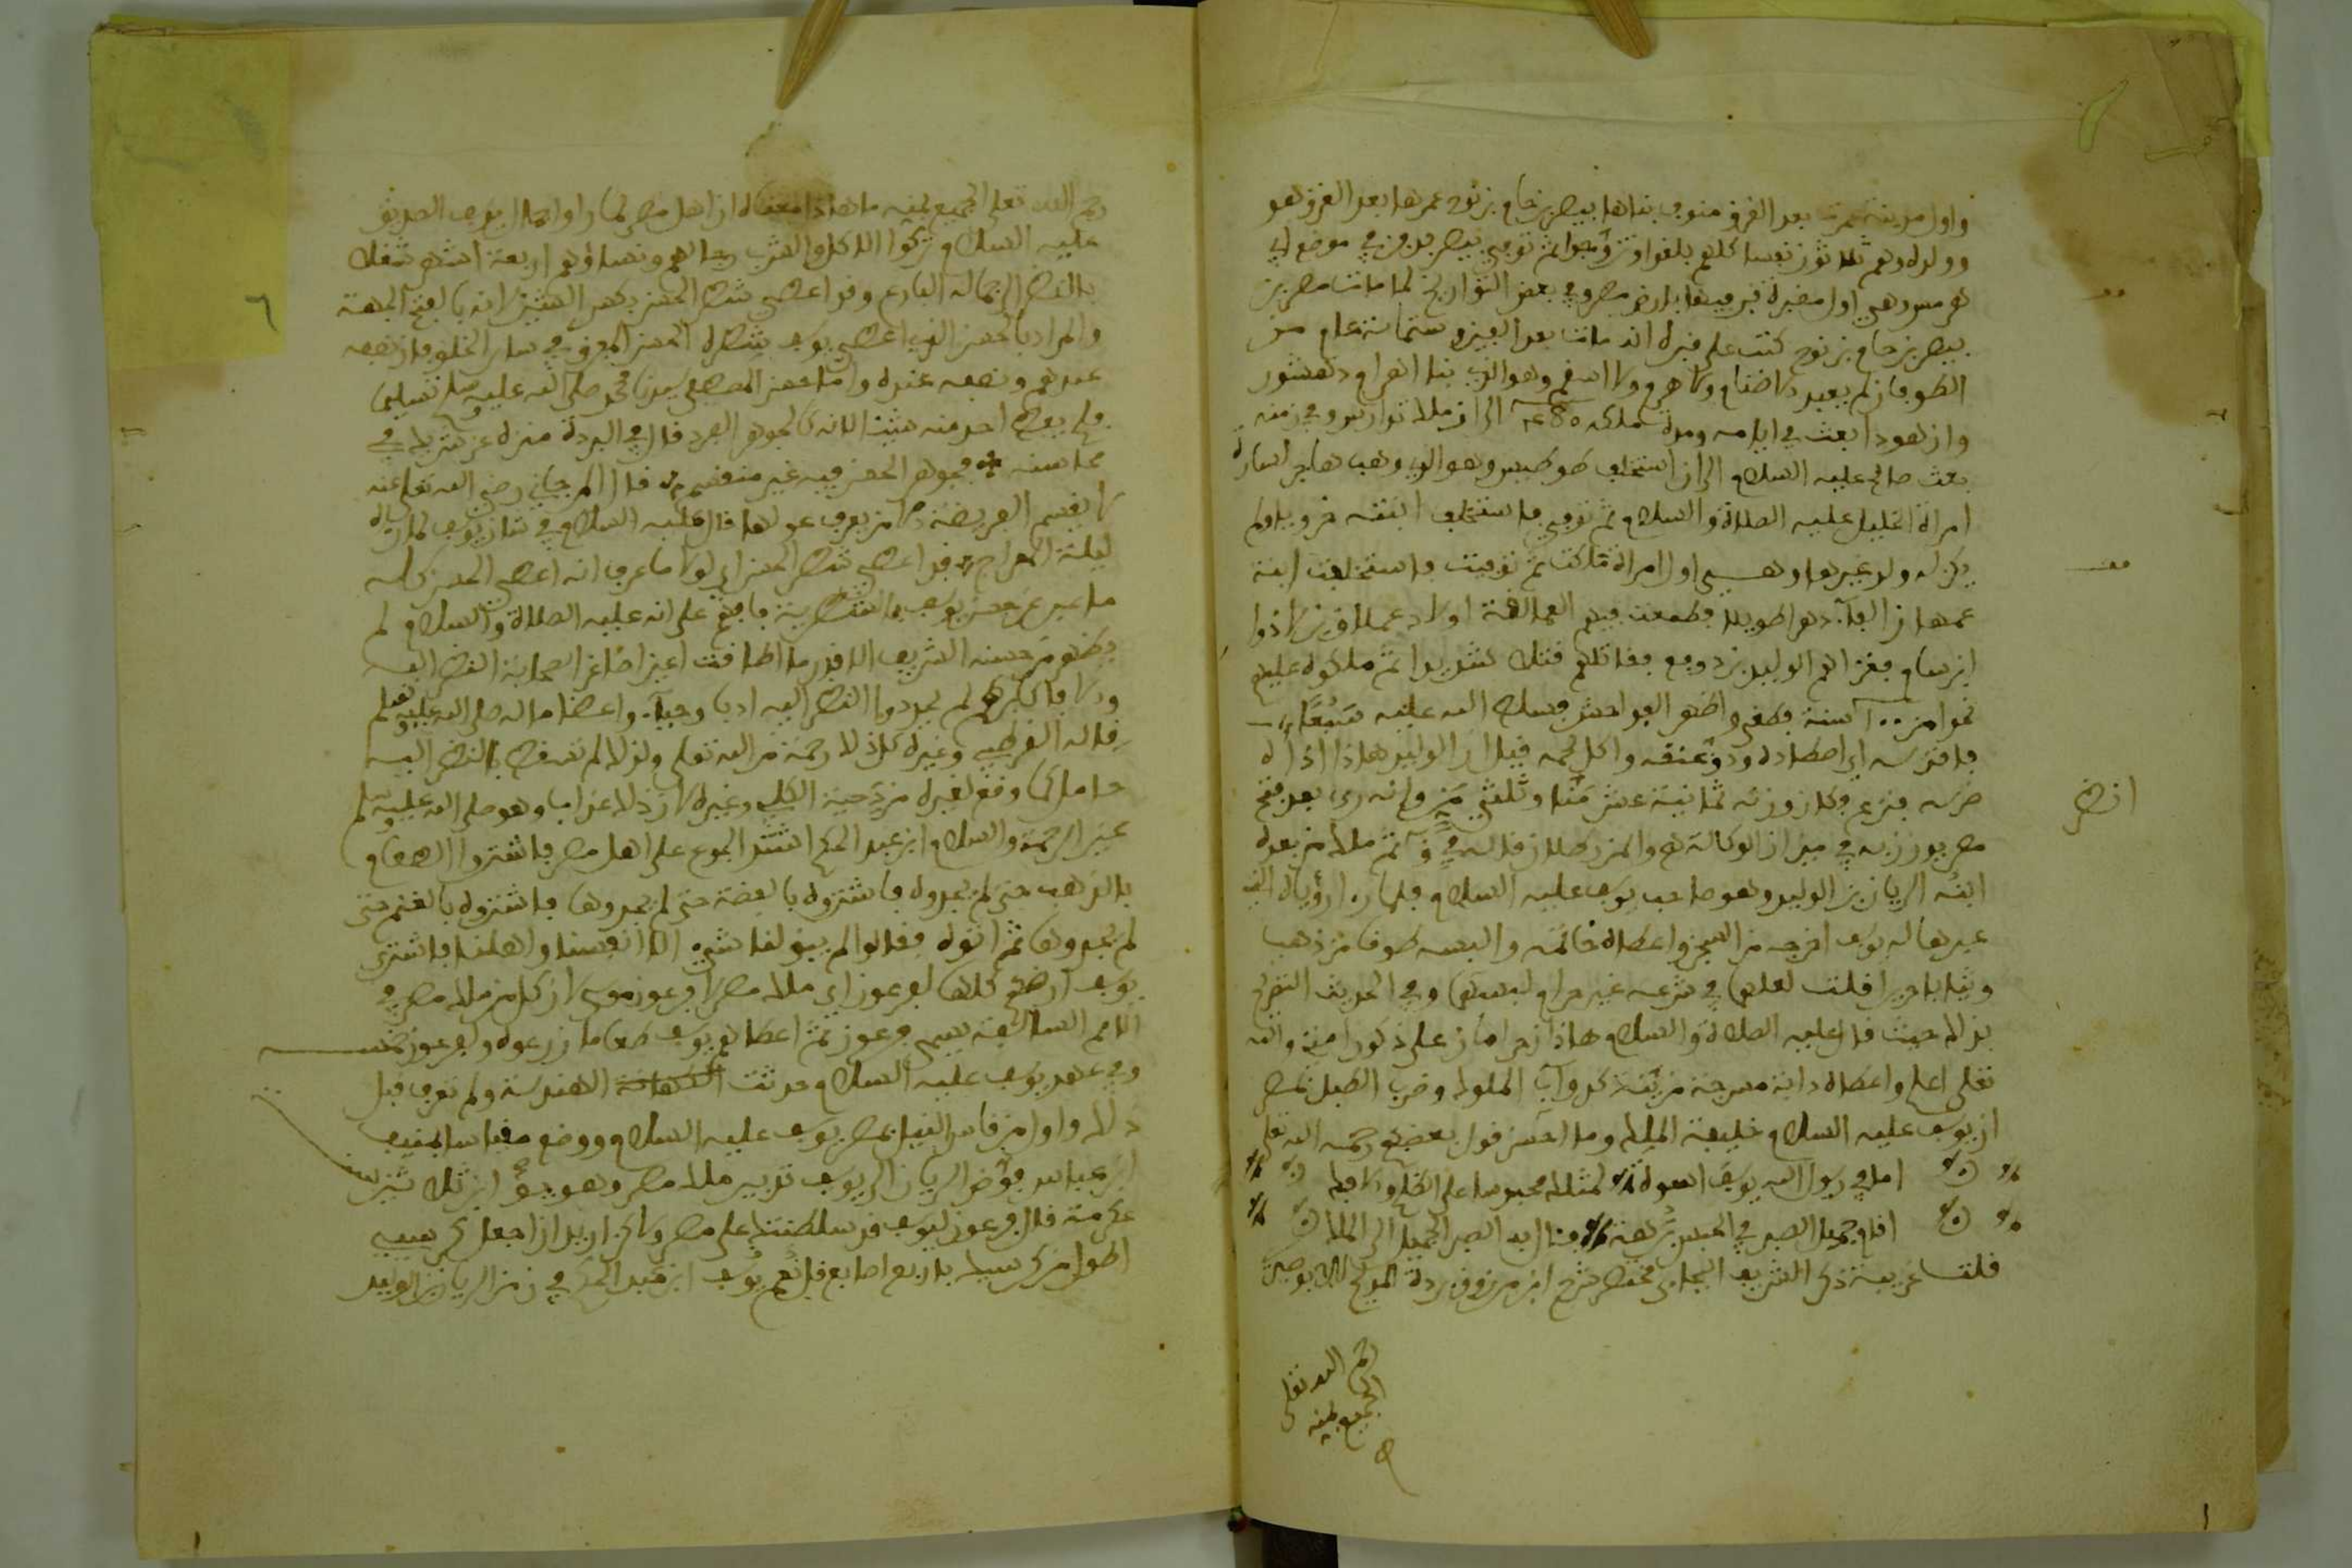 واول مدينة عمرت بعد الغرق منوف بناها بيصر بن حام بن نوح عمرها بعد الغرق هو
وولده وهم ثلاثون نفسا كلهم بلغوا وتزوجوا ثم توفي بيصر فدفن في موضع ابي
هرميس وهي اول مقبرة قبر فيها بارض مصر وفي بعض التواريخ لما مات مصر بن
بيصر بن حام بن نوح كتب على قبره انه مات بعد الفين وستمائة عام من
الطوفان لم يعبد الاصنام ولا هرم ولا اسقم وهو الذي بنا اهرام دهشور
وان هودا بعث في ايامه ومدة ملكه الى ان ملك تدارس وفي زمنه
بعث صالح عليه السلام الى ان استخلف طوطيس وهو الذي وهب هاجر لسارة
امراة الخليل عليه الصلاة والسلام ثم توفي فاستخلف ابنته خروبا ولم
يكن له ولد غيرها وهي اول امراة ملكت ثم توفيت فاستخلفت ابنة
عمها زالفا دهرا طويلا فطمعت فيهم العمالقة اولاد عملاق بن لاوذ
ابن سام فغزاهم الوليد بن دومع فقاتلهم قتالا شديدا ثم ملكوه عليهم
نحوا من ١٠٠ سنة فطغى واظهر الفواحش فسلط الله عليه سبعا
فافترسه اي اصطاده ودق عنقه واكل لحمه قيل ان الوليد هاذا اذاه
ضرسه فنزع فكان وزنه ثمانية عشر منا وثلثي من وانه رءي بعد فتح
مصر يوزن به في ميزان الوكالة هو والمن رطلان قاله في ق ثم ملك من بعده
ابنه الريان بن الوليد وهو صاحب يوسف عليه السلام فلما را الرؤيا التي
عبرها له يوسف اخرجه من السجن واعطاه خاتمه والبسه طوقا من ذهب
وثيابا حريرا قلت لعلهما في شرعه غير حرام لبسهما وفي الحديث التصريح
بذلك حيث قال عليه الصلاة والسلام هاذان حرامان على ذكور امتي والله
تعلى اعلم واعطاه دابة مسرجة مزينة كدواب الملوك وضرب الطبل بمصر
ان يوسف عليه السلام خليفة الملك وما احسن قول بعضهم رحمه الله تعلى
اما في رسول الله يوسف اسوة لمثلك محبوسا على الظلم والافك
اقام جميل الصبر في الحبس برهة فئال به الصبر الجميل الى الملك
قلت غريبة ذكر الشريف البجاءي مختصر شرح ابن مرزوق بردة المديح للبوصيري
رحم الله تعلى
الجميع بمنه
انظر
رحم الله تعلى الجميع بمنه ما هاذا معناه ان اهل مصر لما راوا جمال يوسف الصديق
عليه السلام تركوا الاكل والشرب رجالهم ونساؤهم اربعة اشهر شغلا
بالنظر الى جماله البارع وقد اعطي شطر الحسن بكسر الشين لانه بالفتح الجهة
والمراد بالحسن الذي اعطي يوسف شطره الحسن المفرق في ساير الخلق فان نصفه
عندهم ونصفه عنده واما حسن المصطفى سيدنا محمد صلى الله عليه وسلم تسليما
فلم يعط احد منه شيئا لانه كالجوهر الفرد قال في البردة منزه عن شريك في
محاسنه * فجوهر الحسن فيه غير منقسم قال المرجاني رضي الله تعلى عنه
لا يقسم الفريضة الا من يعرف عولها قال عليه السلام في شان يوسف لما راه
ليلة المعراج قد اعطي شطر الحسن اي لولا ما عرف انه اعطي الحسن كله
ما عبر عن حسن يوسف بالشطرية فافهم على انه عليه الصلاة والسلام لم
يظهر من حسنه الشريف الا قدر ما اطاقت اعين اصاغر الصحابة النظر اليه
والا فاكابرهم لم يحدوا النظر اليه ادبا وحياء واعظاما له صلى الله عليه وسلم
قاله القرطبي وغيره كل ذلك رحمة من الله تعلى ولذلك لم تسقط بالنظر اليه
حامل كما وقع لغيره من دحية الكلبي وغيره لان ذلك عذاب وهو صلى الله عليه وسلم
عين الرحمة والسلام ابن عبد الحكم اشتد الجوع على اهل مصر فاشتروا الطعام
بالذهب حتى لم يجدوه فاشتروه بالفضة حتى لم يجدوها فاشتروه بالغنم حتى
لم يجدوها ثم اتوه فقالوا لم يبق لنا شيء الا انفسنا واهلنا فاشترى
يوسف ارضهم كلها لفرعون اي ملك مصر لا فرعون موسى لان كل من ملك مصر في
الامم السالفة يسمى فرعون ثم اعطاهم يوسف طعاما زرعوه ولفرعون خمسه
وفي عهد يوسف عليه السلام حدثت الهندسة ولم تعرف قبل
ذلك واول من قاس النيل بمصر يوسف عليه السلام ووضع مقياسا بمنف
ابن عباس فوض الريان الى يوسف تدبير ملك مصر وهو يومئذ ابن ثلاثين سنة
عكرمة قال فرعون ليوسف قد سلطتك على مصر ولاكن اريد ان اجعل كرسيي
اطول من كرسيك باربع اصابع قال نعم يوسف ابن عبد الحكم في زمن الريان بن الوليد